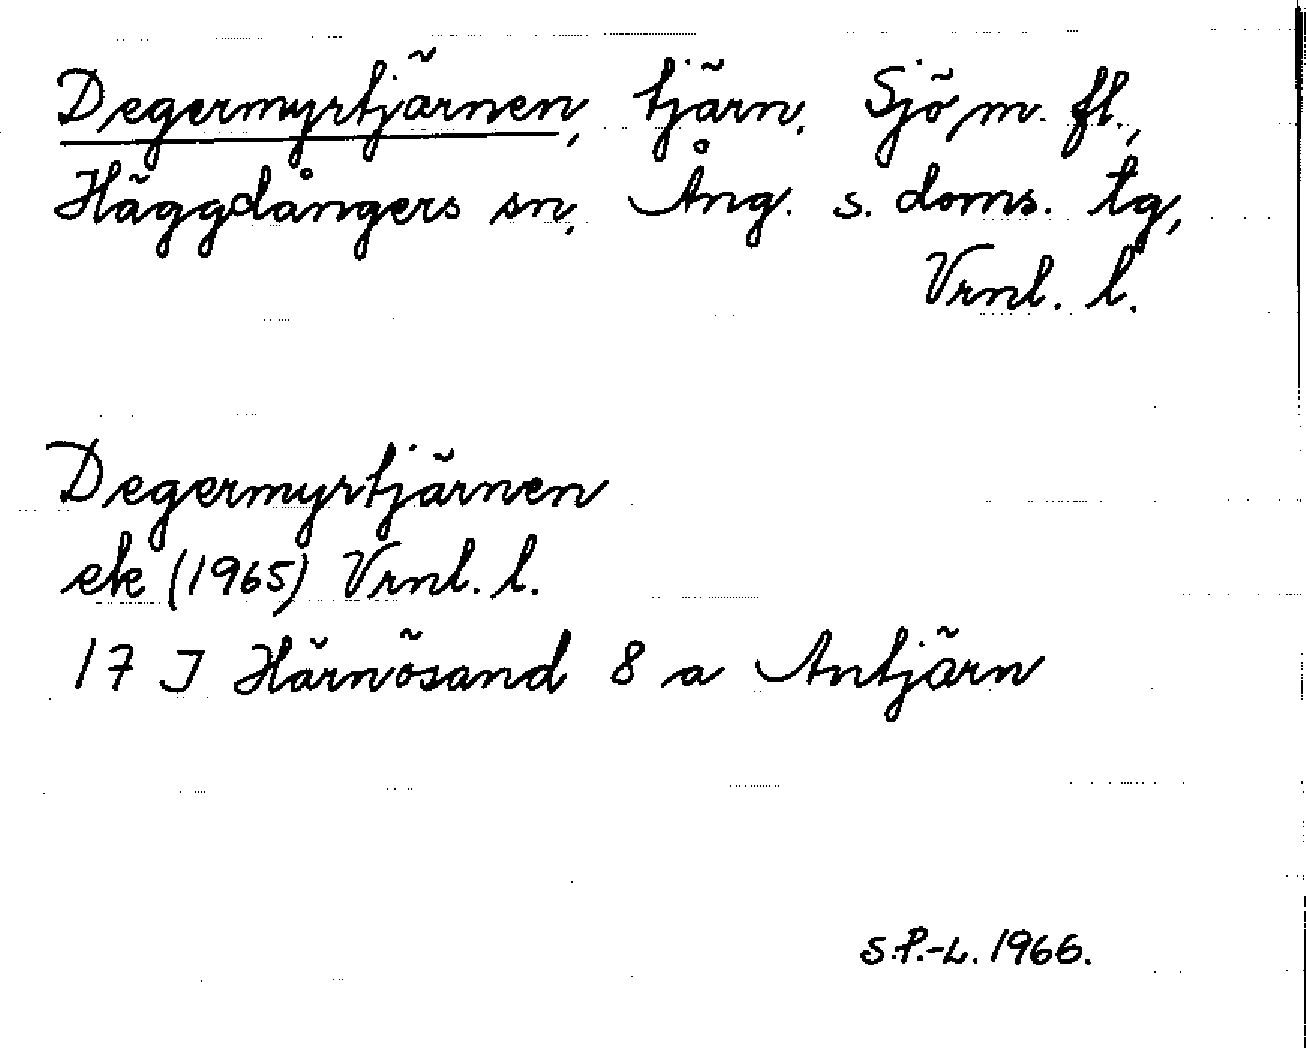 Degermyrtjärnen, tjärn, Sjö m. fl.,
Häggdångers sn, Ång. s. doms. tg,
Vrnl. l.
Degermyrtjärnen
ek (1965) Vrnl. l.
17 J Härnösand 8 a Antjärn
S.P.-L. 1966.